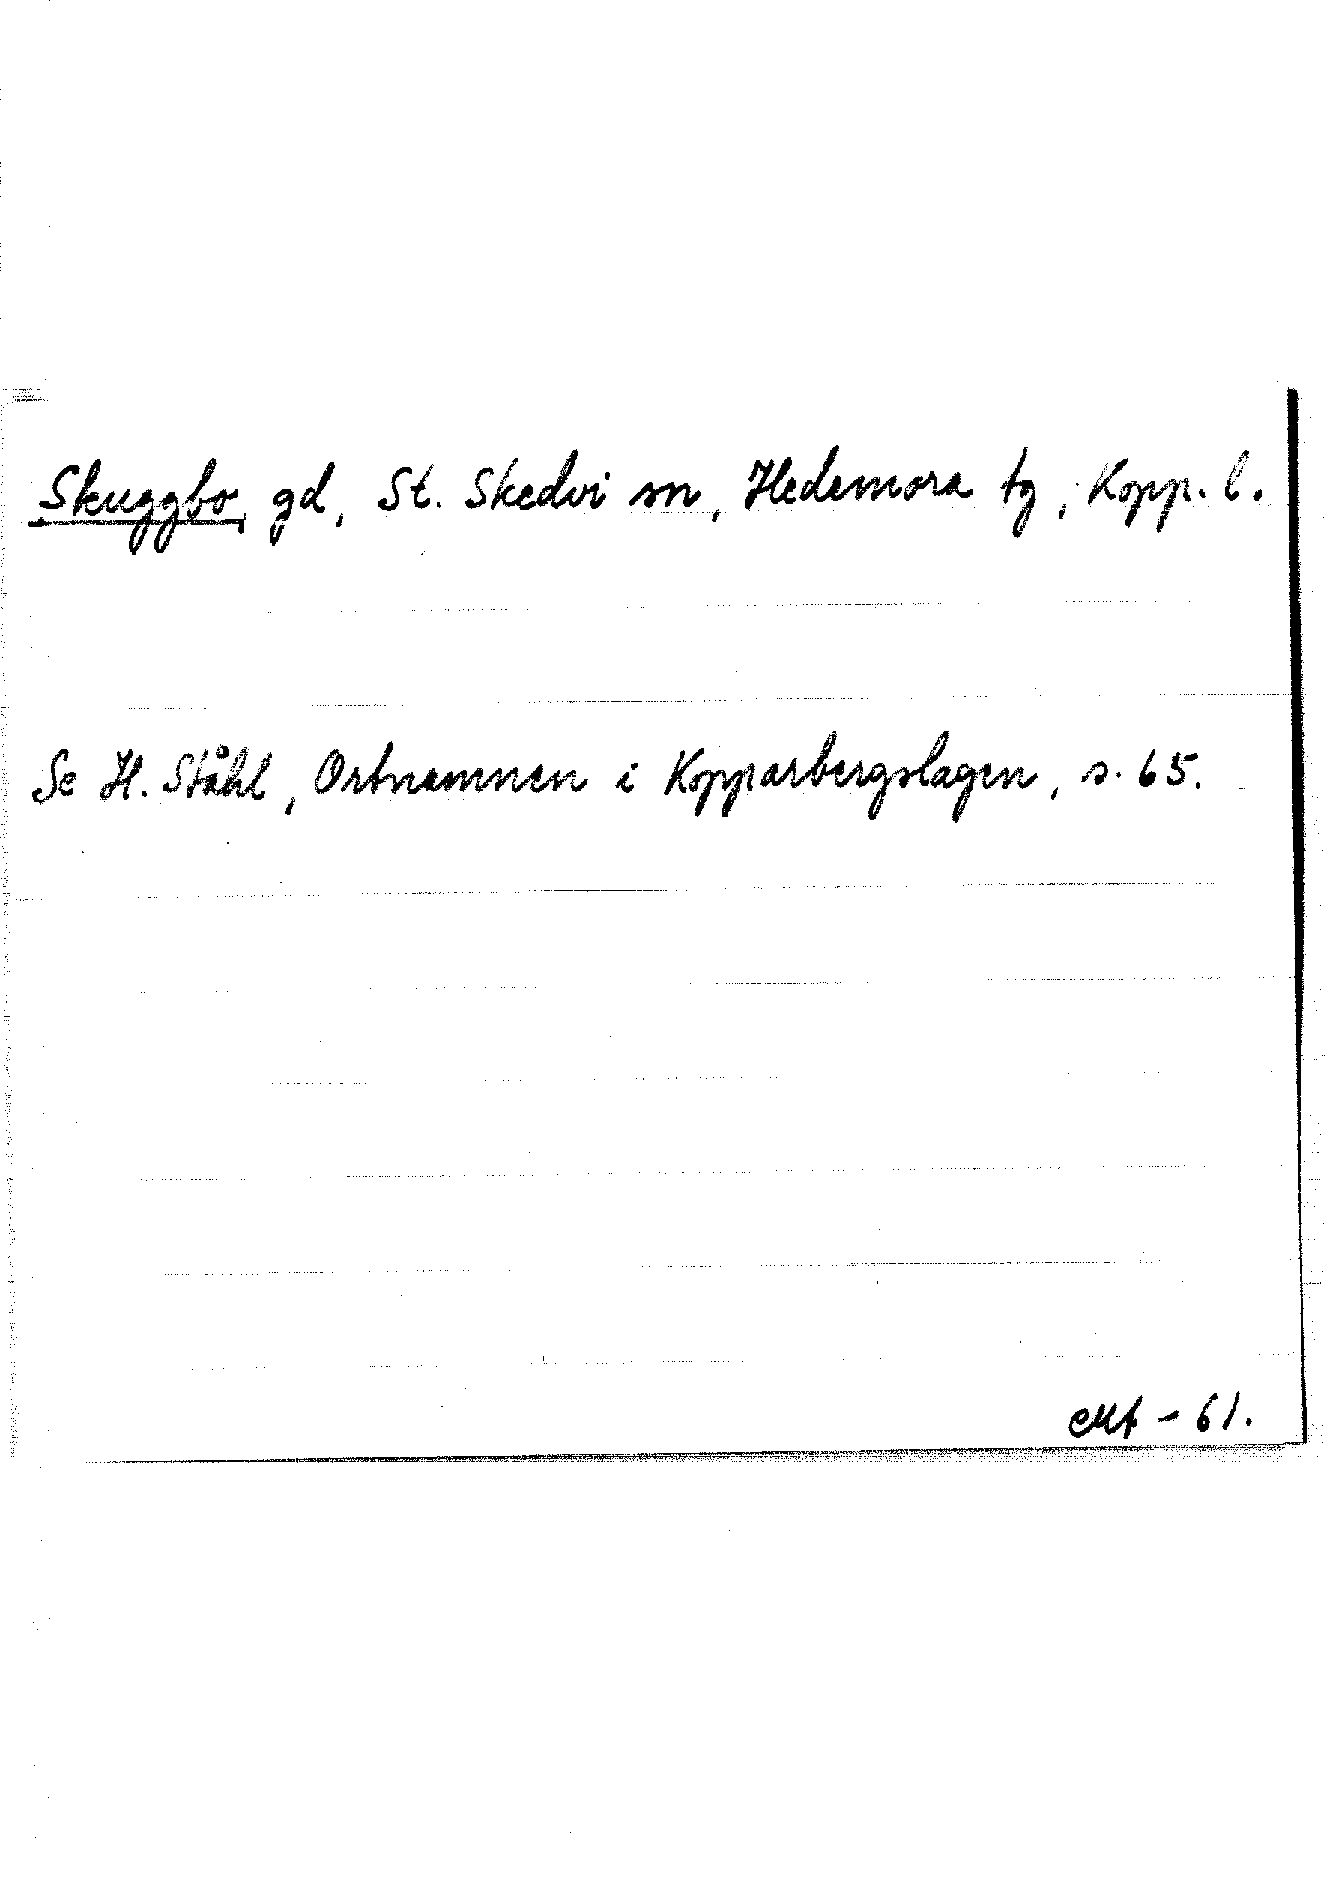 Skuggbo, gd, St. Skedvi sn, Hedemora tg, Kopp. l.
Se H. Ståhl, Ortnamnen i Kopparbergslagen, s. 65.
- 61.